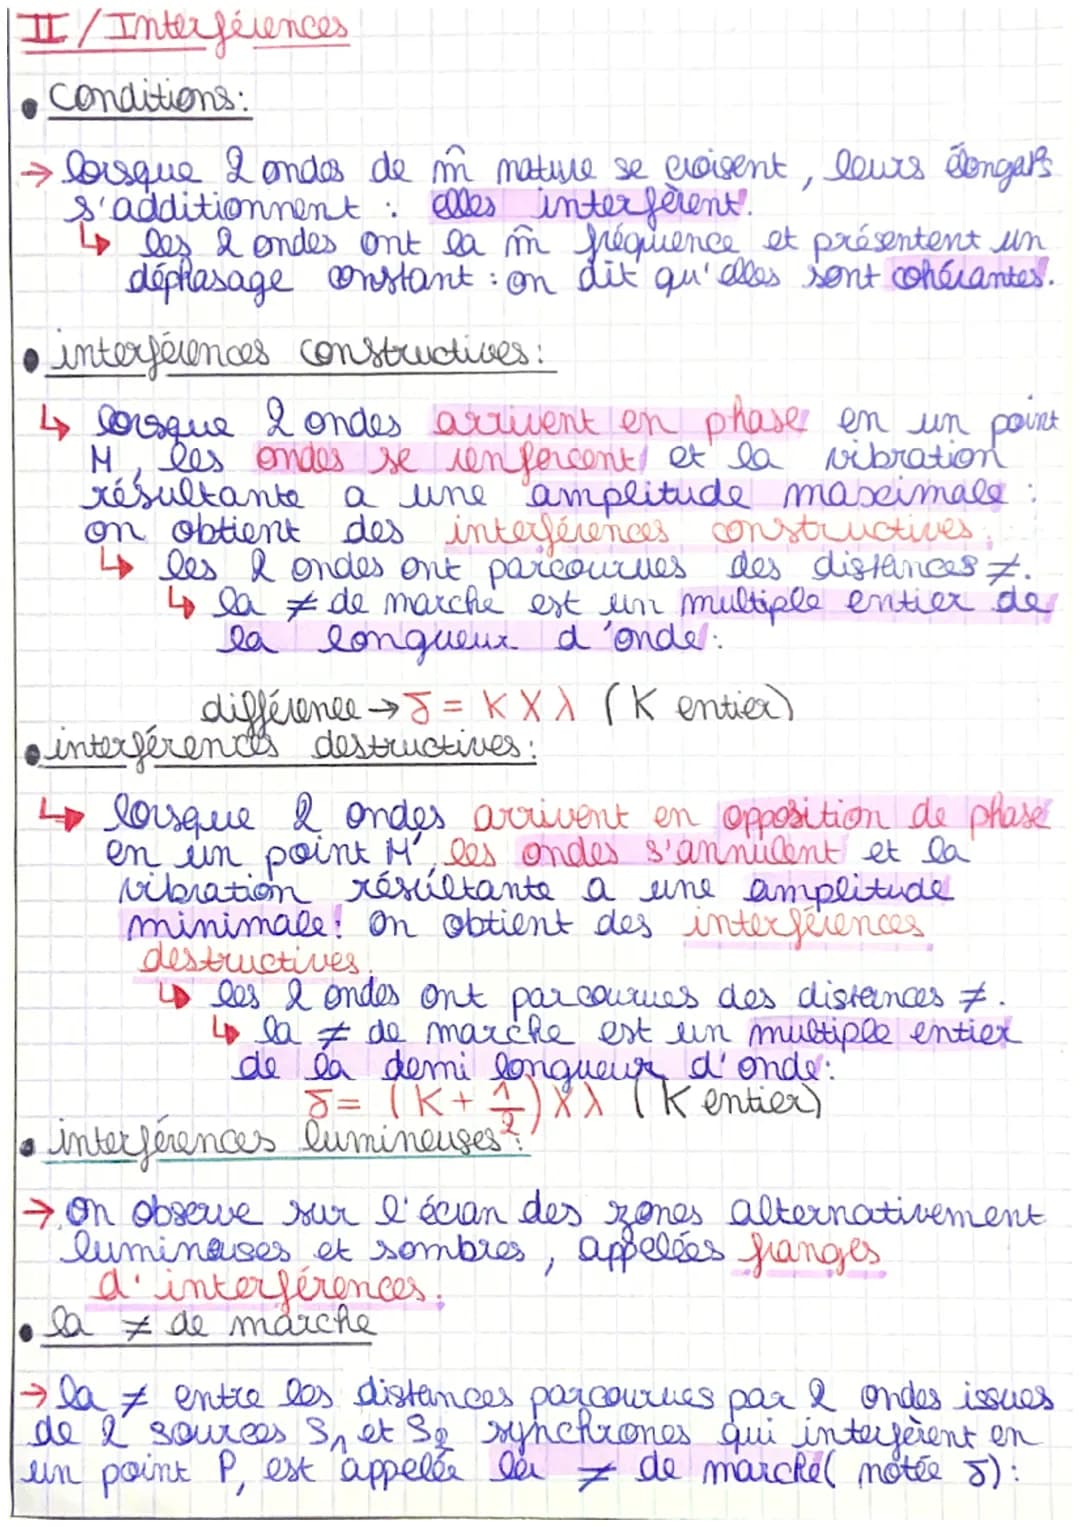 II / Interférences
• Conditions:
→ lorsque 2 ondes de m̂ nature se croisent, leurs élongat°s
s'additionnent : elles interfèrent.
↳ les 2 ondes ont la m̂ fréquence et présentent un
déphasage constant : on dit qu'elles sont cohérantes.
• interférences constructives:
↳ lorsque 2 ondes arrivent en phase en un point
M, les ondes se renforcent, et la vibration
résultante a une amplitude maximale :
on obtient des interférences constructives.
↳ les 2 ondes ont parcourues des distances ≠.
↳ la ≠ de marche est un multiple entier de
la longueur d'onde:
différence → δ = K X λ (K entier)
• interférences destructives:
↳ lorsque 2 ondes arrivent en opposition de phase
en un point M', les ondes s'annulent et la
vibration résultante a une amplitude
minimale: on obtient des interférences
destructives.
↳ les 2 ondes ont parcourues des distances ≠.
↳ la ≠ de marche est un multiple entier
de la demi longueur d'onde:
δ = (K + 1/2) X λ (K entier)
• interférences lumineuses:
→ on observe sur l'écran des zones alternativement
lumineuses et sombres, appelées franges
d'interférences.
• la ≠ de marche
→ la ≠ entre les distances parcourues par 2 ondes issues
de 2 sources S₁ et S₂ synchrones qui interfèrent en
un point P, est appelée la ≠ de marche (notée δ):